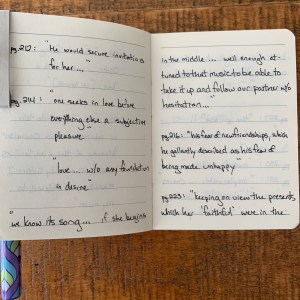 pg.210: "He would secure invitations
for her...."
pg.214: "one seeks in love before
everything else a subjective
pleasure"
"love... w/o any foundation
in desire"
"we know its song.... if she begins
in the middle... well enough at-
tuned to that music to be able to
take it up and follow our partner w/o
hesitation..."
pg.216: "his fear of new friendships, which
he gallantly described as his fear of
being made unhappy"
pg.223: "keeping on view the presents
which her "faithful" were in the